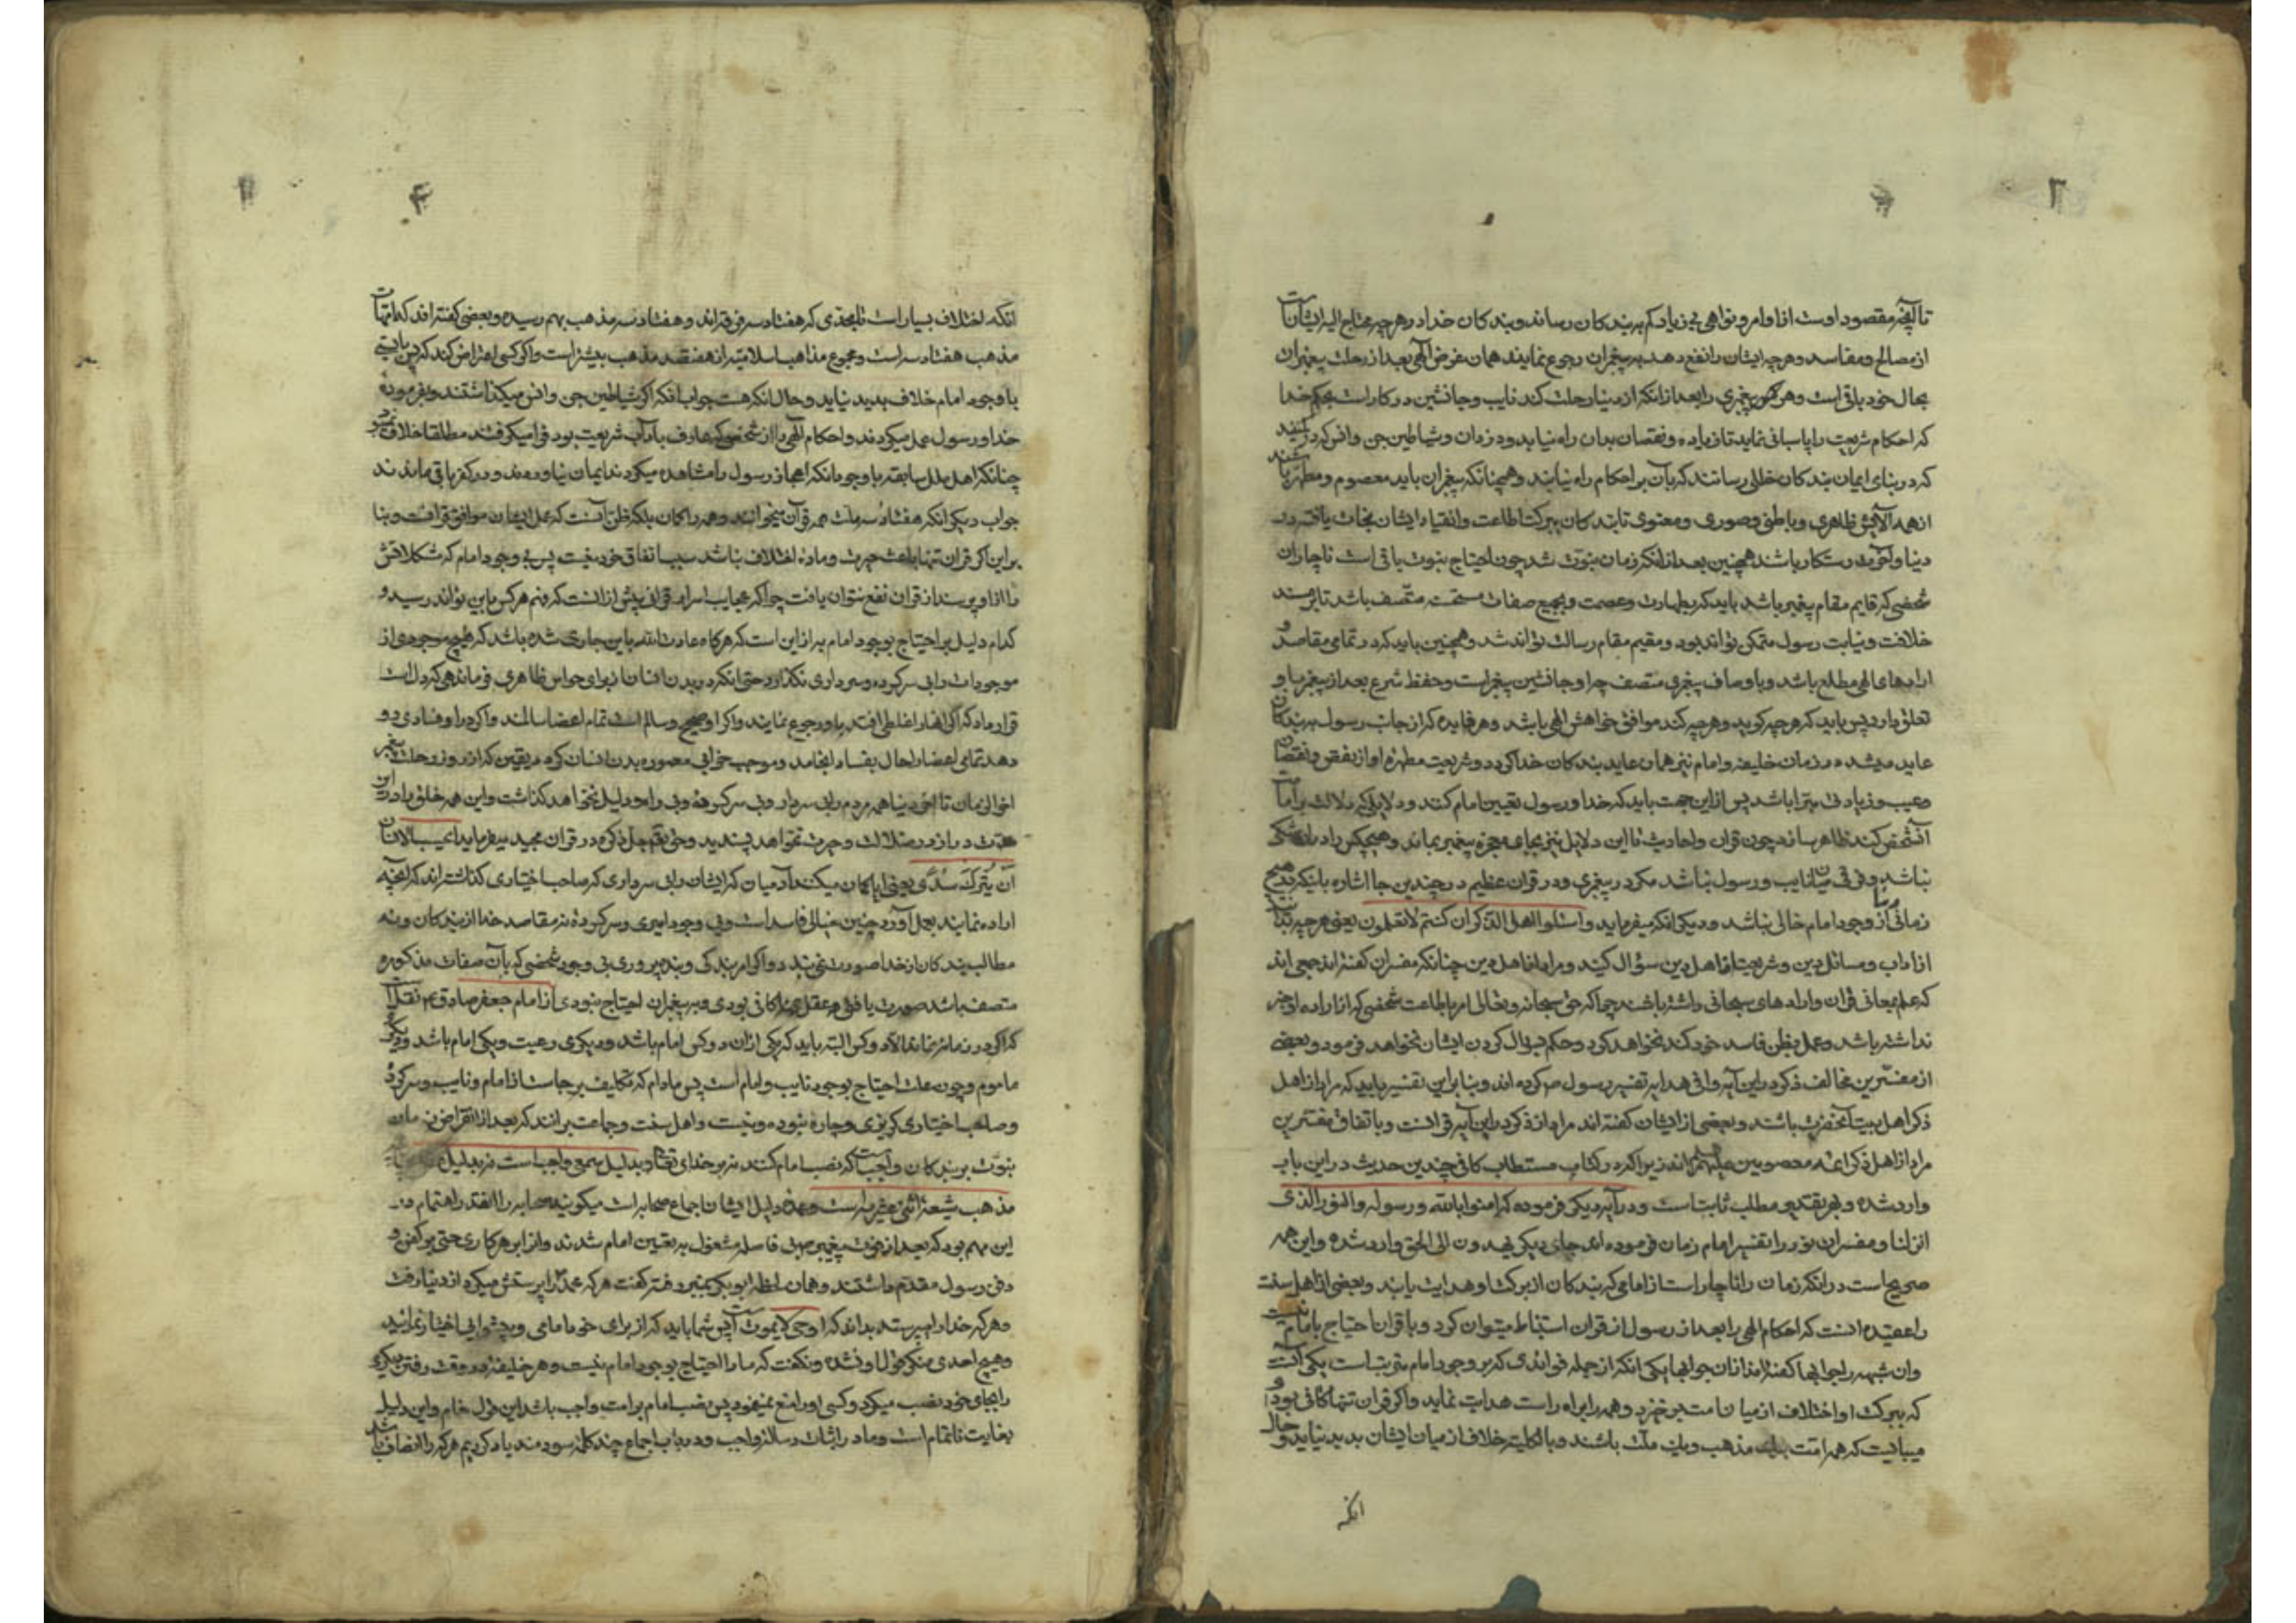 تا آنچه مقصود اوست از اوامر و نواهی بی زیاد و کم به بندکان رساند و بندکان خدا در هر چه محتاج الیه ایشانست
از مصالح و مفاسد و هر چه ایشان را نفع دهد به پیغمبران رجوع نمایند همان غرض الهی بعد از رحلت پیغمبران
بحال خود باقی است و هر پیغمبری را بعد از انکه از دنیا رحلت کند نایب و جانشین در کار است بحکم خدا
که احکام شریعت را پاسبانی نماید تا زیاده و نقصان بدان راه نیابد و دزدان و شیاطین جن و انس که در کمینند
که در بنای ایمان بندکان خللی رسانند که بآن بر احکام راه نیابند و همچنانکه پیغمبران باید معصوم و مطهر باشند
از همه آلایش ظاهری و باطنی و صوری و معنوی تا بندکان ببرکت اطاعت و انقیاد ایشان نجات یافته در
دنیا و آخرت رستکار باشند همچنین بعد از انکه زمان نبوت شد چون احتیاج نبوت باقی است ناچار ان
شخصی که قایم مقام پیغمبر باشد باید که بطهارت و عصمت و بجمیع صفات مستحسنه متصف باشد تا بر مسند
خلافت و نیابت رسول متمکن تواند بود و مقیم مقام رسالت تواند شد و همچنین باید که در تمامی مقاصد و
ارادهای الهی مطلع باشد و باوصاف پیغمبری متصف چرا که جانشین پیغمبر است و حفظ شرع بعد از پیغمبر باو
تعلق دارد پس باید که هر چه کوید و هر چه کند موافق خواهش الهی باشد و هر فایده که از جانب رسول به بندکان
عاید میشد در زمان خلیفه و امام نیز همان عاید بندکان خدا کردد و شریعت مطهره او از نقص و نقصان
و عیب و زیادتی مبرا باشد پس از این جهت باید که خدا و رسول تعیین امام کنند و دلایلی که دلالت بر امامت
آنشخص کند ظاهر سازد چون قران و احادیث تا این دلایل نیز بجای معجزه پیغمبر بماند و هیچکس را در ان شکی
نباشد و فرقی میان نایب و رسول نباشد مکر در پیغمبری و در قران عظیم در چندین جا اشاره باینکه هیچ
زمانی از وجود امام خالی نباشد و دیکر انکه میفرماید و اسئلوا اهل الذکر ان کنتم لا تعلمون یعنی هر چه ندانید
از اداب و مسائل دین و شریعت از اهل دین سؤال کنید و مراد از اهل دین چنانکه مفسران کفته اند جمعی اند
که علم بمعانی قران و ارادهای سبحانی داشته باشند چرا که حق سبحانه و تعالی امر باطاعت شخصی که از اراده او خبر
نداشته باشد و عمل بظن فاسد خود کند نخواهد کرد و حکم بسؤال کردن ایشان نخواهد فرمود و بعضی
از مفسرین مخالف ذکر در این آیه وافی هدایه تفسیر برسول ص کرده اند و بنا بر این تفسیر باید که مراد از اهل
ذکر اهل بیت آنحضرت باشد و بعضی از ایشان کفته اند مراد از ذکر در این آیه قرانست و باتفاق مفسرین
مراد از اهل ذکر ائمه معصومین علیهم اند زیرا که در کتاب مستطاب کافی چندین حدیث در این باب
وارد شده و بهر تقدیر مطلب ثابت است و در آیه دیکر فرموده که امنوا بالله و رسوله و النور الذی
انزلنا و مفسران نور را تفسیر امام زمان فرموده اند جای دیکر یهدون الی الحق وارد شده و این همه
صریح است در انکه زمان را ناچار است از امامی که بندکان از برکت او هدایت یابند و بعضی از اهل سنت
را عقیده انست که احکام الهی را بعد از رسول از قران استنباط میتوان کرد و با قران احتیاج بامام نیست
و ان شبهه را جوابها کفته اند از ان جوابها یکی انکه از جمله فوایدی که بر وجود امام مترتب است یکی آنست
که ببرکت او اختلاف از میان امت برخیزد و همه را براه راست هدایت نماید و اکر قران تنها کافی بود
میبایست که همه امت بیک مذهب و یک ملت باشند و بالکلیه خلاف از میان ایشان بدید نیاید و حال
انکه
انکه اختلاف بسیار است تا بحدی که هفتاد و سه فرقه اند و هفتاد و سه مذهب بهم رسیده و بعضی کفته اند که امهات
مذهب هفتاد و سه است و مجموع مذاهب اسلامیه از هفتصد مذهب بیشتر است و اکر کسی اعتراض کند که پس بایستی
با وجود امام خلاف بدید نیاید و حال انکه هست جواب انکه اکر شیاطین جن و انس میکذاشتند و بفرموده
خدا و رسول عمل میکردند و احکام الهی را از شخصی که عارف بآداب شریعت بود فرا میکرفتند مطلقا خلاف نمیبود
چنانکه اهل ملل سابقه با وجود انکه اعجاز رسول را مشاهده میکردند ایمان نیاوردند و در کفر باقی ماندند
جواب دیکر انکه هفتاد و سه ملت همه قرآن میخوانند و همه را کمان بلکه ظن آنست که عمل ایشان موافق قرانست و بنا
بر این اکر قران تنها باعث حیرت و ماده اختلاف نباشد سبب اتفاق خود نیست پس بی وجود امام که مشکلاتش
را از او پرسند از قران نفع نتوان یافت چرا که عجایب اسرار قران بیش از انست که فهم هر کس باین تواند رسید و
کدام دلیل بر احتیاج بوجود امام به از این است که هر کاه عادت الله باین جاری شده باشد که هیچ موجودی از
موجودات را بی سرکرده و سرداری نکذارد حتی انکه در بدن انسان از برای حواس ظاهری فرماندهی که دل است
قرار داد که اکر انها را غلطی افتد باو رجوع نمایند و اکر او صحیح و سالم است تمام اعضا سالمند و اکر در او فسادی رو
دهد تمامی اعضا را حال بفساد انجامد و موجب خرابی معموره بدن انسان کردد یقین که از روز رحلت پیغمبر
اخر الزمان تا اخر دنیا همه مردم را بی سردار و بی سرکرده و بی راه و دلیل نخواهد کذاشت و این همه خلق را در این
مدت دراز در ضلالت و حیرت نخواهد پسندید و حق تعالی جل ذکره در قران مجید میفرماید ایحسب الانسان
ان یترک سدی یعنی ایا کمان میکنند آدمیان که ایشان را بی سرداری که صاحب اختیاری کذاشته اند که انچه
اراده نمایند بعمل آورد چنین خیالی فاسد است و بی وجود امیری و سرکرده نه مقاصد خدا از بندکان و نه
مطالب بندکان از خدا صورت نمی بندد و اکر امر بندکی و بنده پروری بی وجود شخصی که بآن صفات مذکوره
متصف باشد صورت یافتی عقل کافی بودی و به پیغمبران احتیاج نبودی از امام جعفر صادق ع نقل است
که اکر در زمانه نماند الا دو کس البته باید که یکی از ان دو کس امام باشد و دیکری رعیت و یکی امام باشد و دیکری
ماموم و چون علت احتیاج بوجود نایب و امام است پس مادام که تکالیف برجاست از امام و نایب و سرکرده
و صاحب اختیاری کریزی و چاره نبوده و نیست و اهل سنت و جماعت بر انند که بعد از انقراض زمان
نبوت بر بندکان واجبست که نصب امام کنند نه بر خدای تعالی و بدلیل سمعی واجب است نه بدلیل
مذهب شیعه اثنی عشریه است و عمده دلیل ایشان اجماع صحابه است میکویند صحابه را انقدر اهتمام در
این مهم بود که بعد از فوت پیغمبر بی فاصله مشغول به تعیین امام شدند و از ابر هر کاری حتی بر کفن و
دفن رسول مقدم داشتند و همان لحظه ابو بکر بمنبر رفته کفت هر که محمد را پرستش میکرد از دنیا رفت
و هر که خدا را میپرستد بداند که او حی لا یموت است پس شما باید که از برای خود امامی و پیشوایی اختیار نمائید
و هیچ احدی منکر قول او نشد و نکفت که ما را احتیاج بوجود امام نیست و هر خلیفه در وقت رفتن دیکری
را بجای خود نصب میکرد و کسی او را منع نمینمود پس نصب امام بر امت واجب باشد این قول خام و این دلیل
بغایت ناتمام است و ما در اثبات رساله واجب و در باب اجماع چند کلمه سودمند یاد کردیم هر که را انصاف باشد